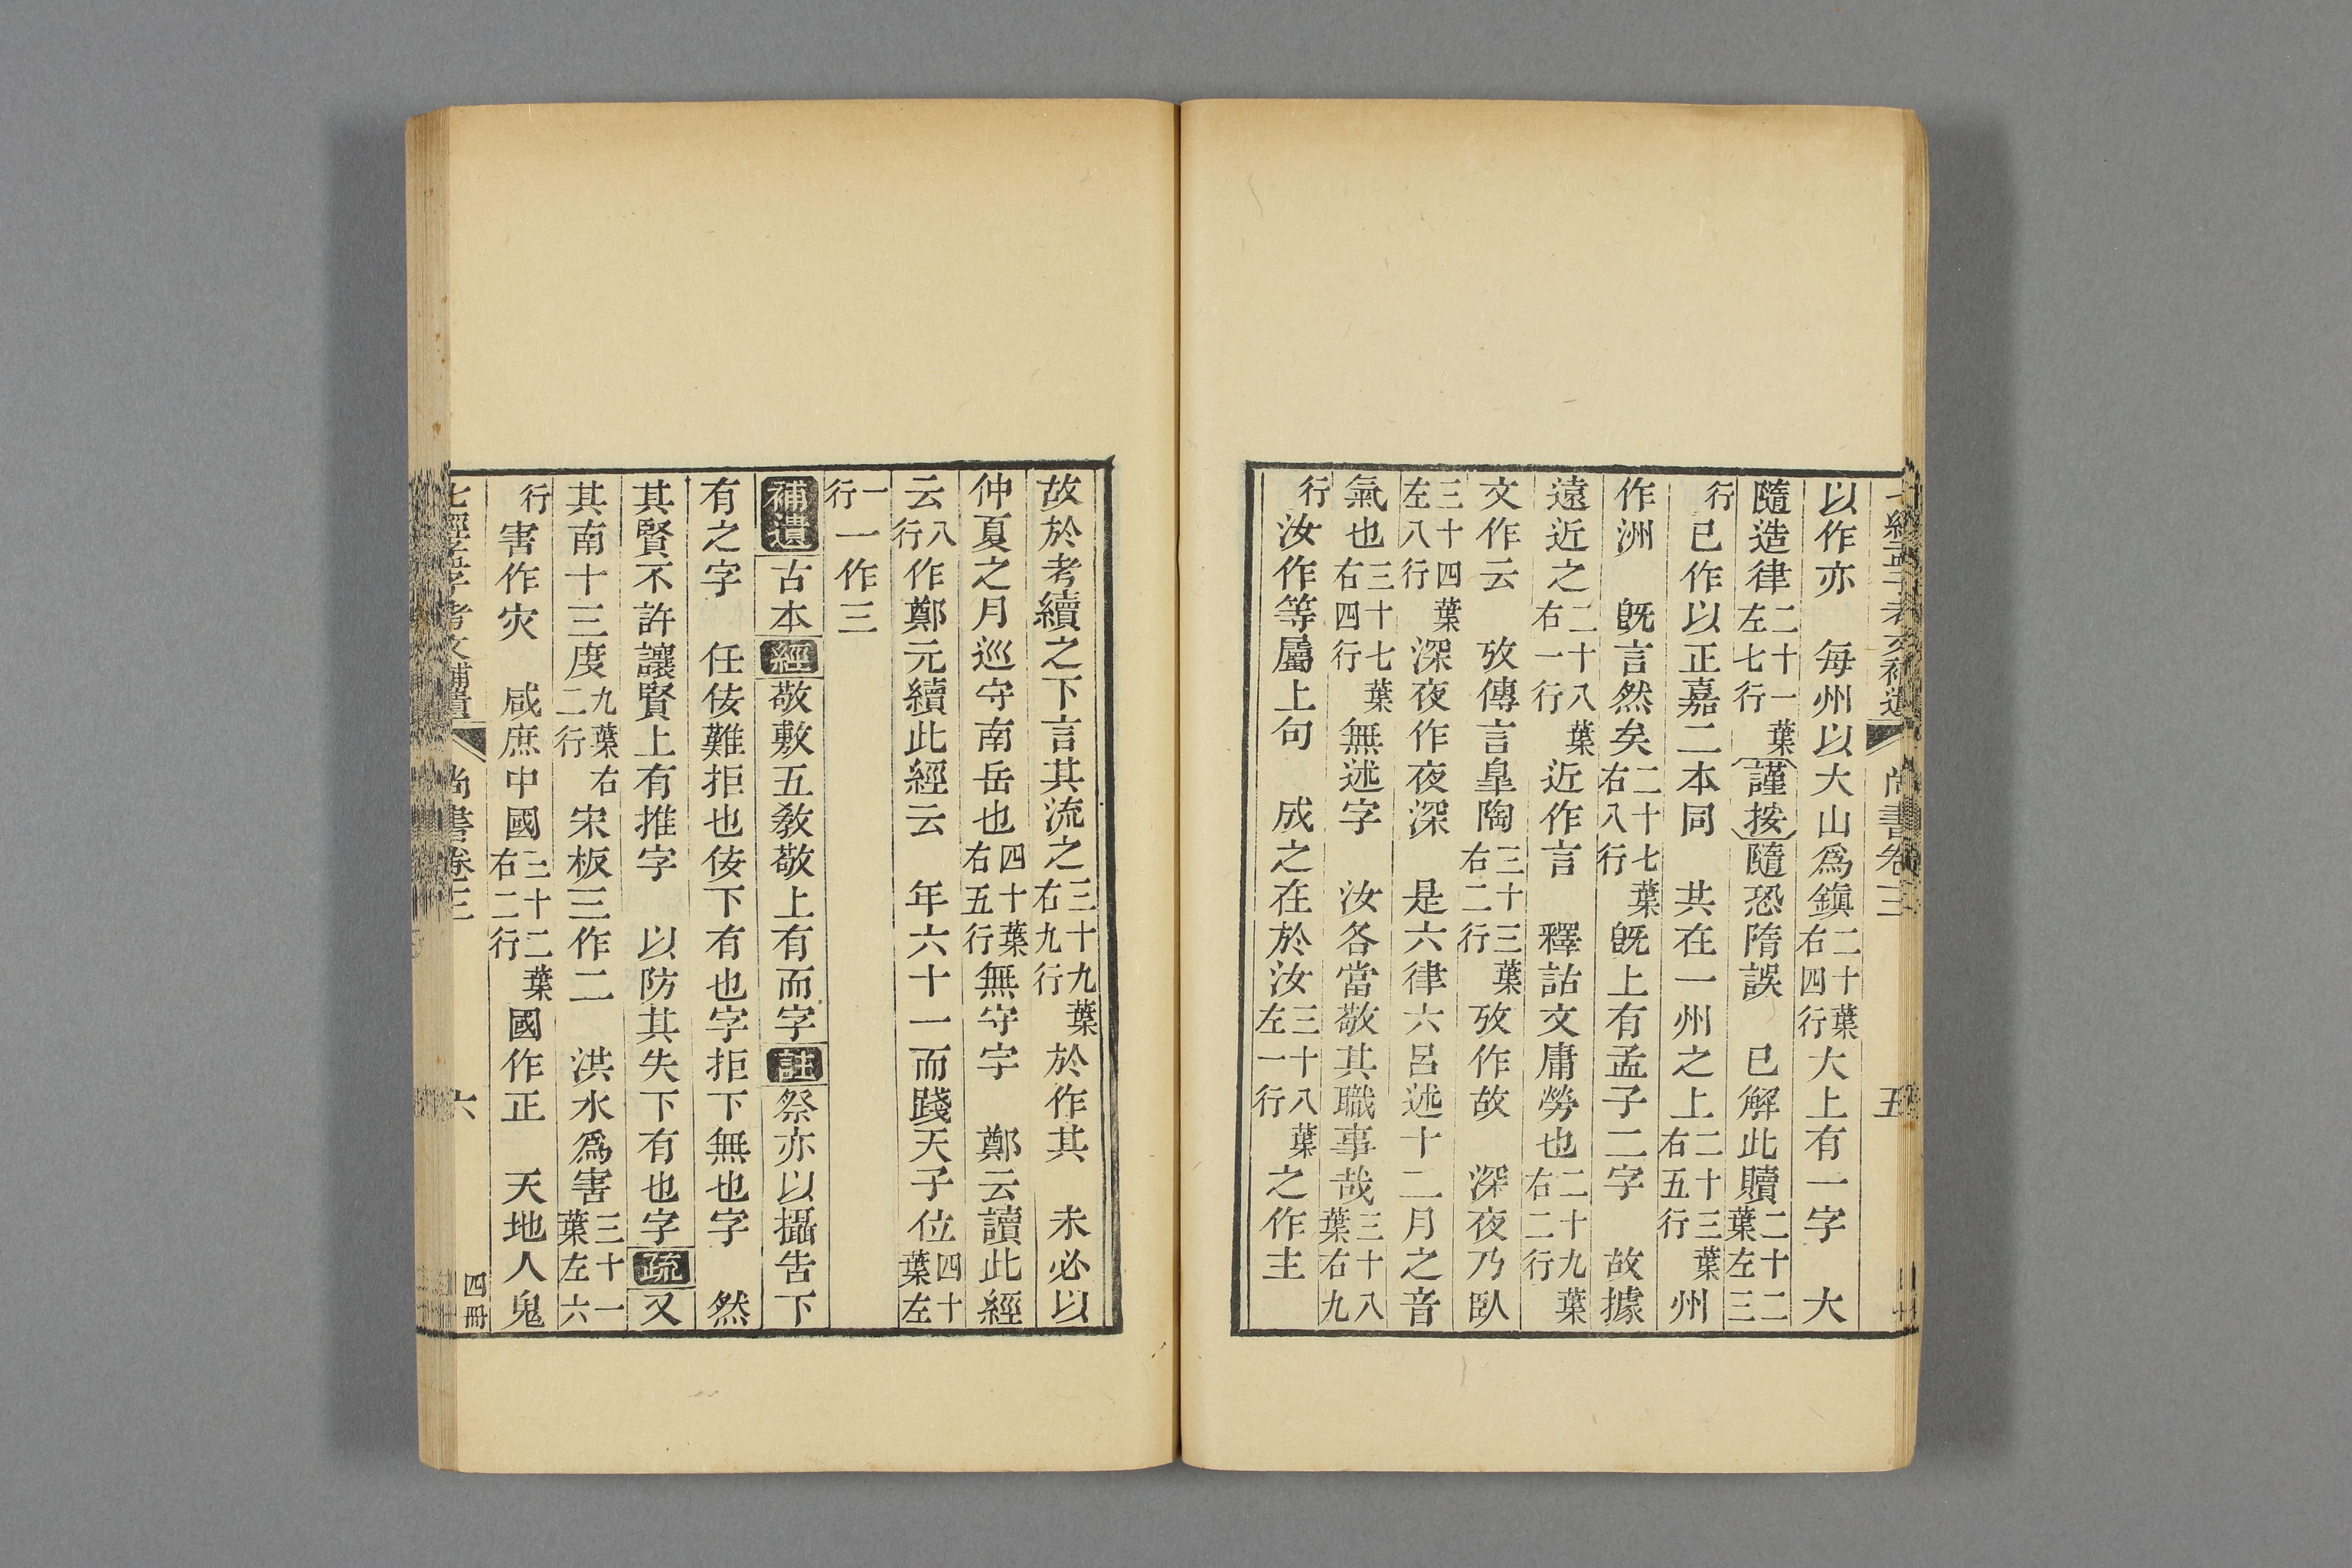 七經孟子考文補遺 尚書卷三 五
以作亦　每州以大山爲鎭二十葉右四行大上有一字　大
隨造律二十一葉左七行謹按隨恐隋誤　已解此贖二十二葉左三
行已作以正嘉二本同　共在一州之上二十三葉右五行州
作洲　旣言然矣二十七葉右八行旣上有孟子二字　故據
遠近之二十八葉右一行近作言　釋詁文庸勞也二十九葉右二行
文作云　攷傳言皐陶三十三葉右二行攷作故　深夜乃臥
三十四葉左八行深夜作夜深　是六律六呂述十二月之音
氣也三十七葉右四行無述字　汝各當敬其職事哉三十八葉右九
行汝作等屬上句　成之在於汝三十八葉左一行之作主
故於考續之下言其流之三十九葉右九行於作其　未必以
仲夏之月巡守南岳也四十葉右五行無守字　鄭云讀此經
云八行作鄭元續此經云　年六十一而踐天子位四十葉左
一行一作三
補遺古本經敬敷五敎敬上有而字註祭亦以攝告下
有之字　任佞難拒也佞下有也字拒下無也字　然
其賢不許讓賢上有推字　以防其失下有也字疏又
其南十三度九葉右二行宋板三作二　洪水爲害三十一葉左六
行害作灾　咸庶中國三十二葉右二行國作正　天地人鬼
七經孟子考文補遺 尚書卷三 六 四冊